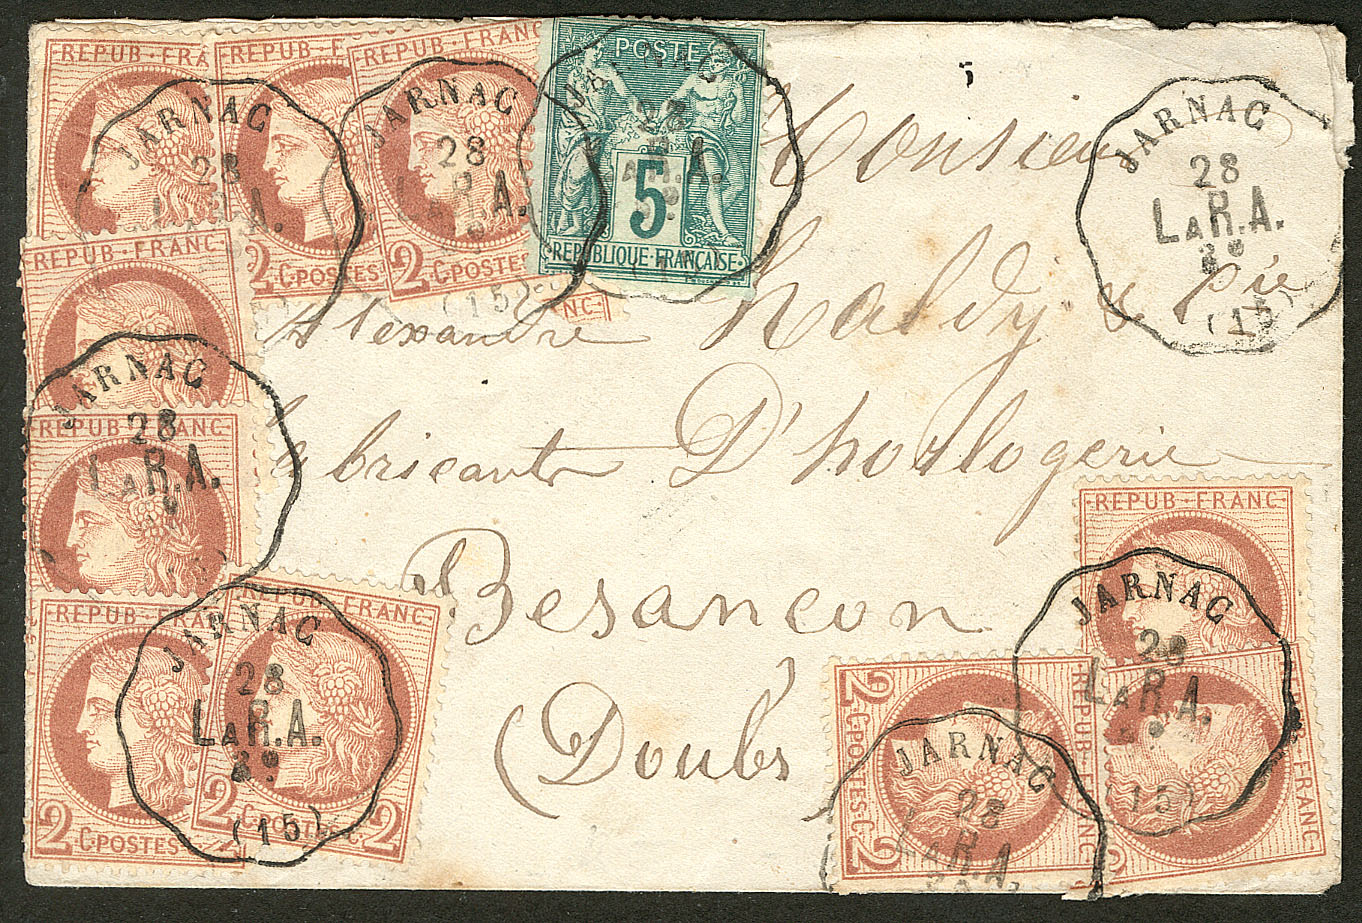 REPUB·FRA
REPUB·F
REPUB·FRANC
POSTES
5
REPUBLIQUE·FRANÇAISE
2·C·POSTES
2·C·POSTES
ANC·
JARNAC
28
LaR.A.
JARNAC
28
LaR.A.
(15)
JARNAC
28
JARNAC
28
LaR.A.
2°
(15)
Monsieur
Alexandre Haldy & Cie
fabricant D'horlogerie
Besancon
(Doubs
REPUB·FRANC
REPUB·FRANC
JARNAC
28
LaR.A.
REPUB·FRA
REPUB·FRANC
2·C·POSTES
2 2
JARNAC
28
LaR.A.
2°
(15)
REPUB·FRANC
JARNAC
28
LaR.A.
(15)
REPUB·FRANC
2·C·POSTES·C·2
FRANC
JARNAC
28
LaR.A.